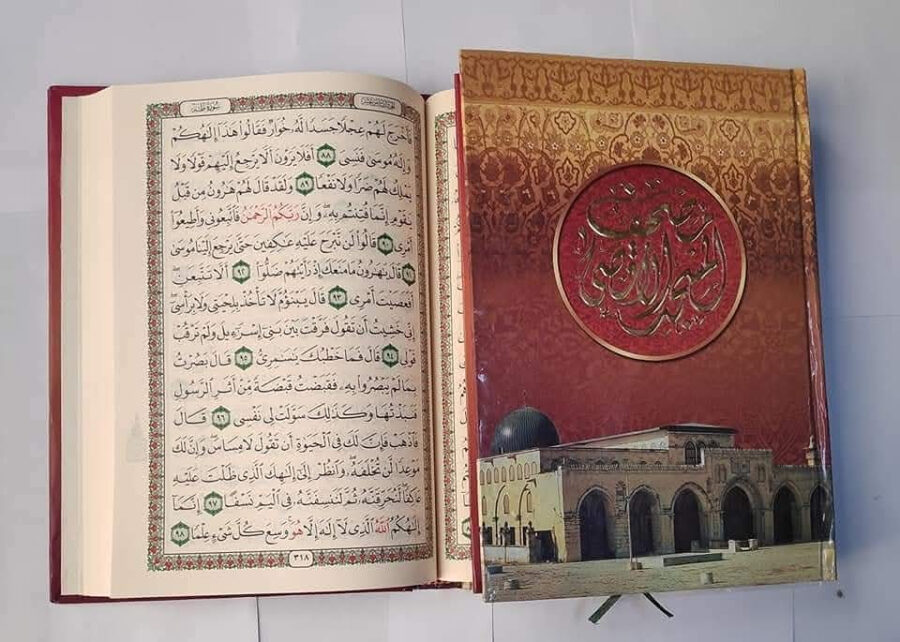 الجزء السادس عشر
سورة طه
فَأَخْرَجَ لَهُمْ عِجْلًا جَسَدًا لَّهُۥ خُوَارٌ فَقَالُوا۟ هَٰذَآ إِلَٰهُكُمْ
وَإِلَٰهُ مُوسَىٰ فَنَسِىَ ٨٨ أَفَلَا يَرَوْنَ أَلَّا يَرْجِعُ إِلَيْهِمْ قَوْلًا وَلَا
يَمْلِكُ لَهُمْ ضَرًّا وَلَا نَفْعًا ٨٩ وَلَقَدْ قَالَ لَهُمْ هَٰرُونُ مِن قَبْلُ
يَٰقَوْمِ إِنَّمَا فُتِنتُم بِهِۦ وَإِنَّ رَبَّكُمُ ٱلرَّحْمَٰنُ فَٱتَّبِعُونِى وَأَطِيعُوٓا۟
أَمْرِى ٩٠ قَالُوا۟ لَن نَّبْرَحَ عَلَيْهِ عَٰكِفِينَ حَتَّىٰ يَرْجِعَ إِلَيْنَا مُوسَىٰ
٩١ قَالَ يَٰهَٰرُونُ مَا مَنَعَكَ إِذْ رَأَيْتَهُمْ ضَلُّوٓا۟ ٩٢ أَلَّا تَتَّبِعَنِ
أَفَعَصَيْتَ أَمْرِى ٩٣ قَالَ يَبْنَؤُمَّ لَا تَأْخُذْ بِلِحْيَتِى وَلَا بِرَأْسِىٓ
إِنِّى خَشِيتُ أَن تَقُولَ فَرَّقْتَ بَيْنَ بَنِىٓ إِسْرَٰٓءِيلَ وَلَمْ تَرْقُبْ
قَوْلِى ٩٤ قَالَ فَمَا خَطْبُكَ يَٰسَٰمِرِىُّ ٩٥ قَالَ بَصُرْتُ
بِمَا لَمْ يَبْصُرُوا۟ بِهِۦ فَقَبَضْتُ قَبْضَةً مِّنْ أَثَرِ ٱلرَّسُولِ
فَنَبَذْتُهَا وَكَذَٰلِكَ سَوَّلَتْ لِى نَفْسِى ٩٦ قَالَ
فَٱذْهَبْ فَإِنَّ لَكَ فِى ٱلْحَيَوٰةِ أَن تَقُولَ لَا مِسَاسَ وَإِنَّ لَكَ
مَوْعِدًا لَّن تُخْلَفَهُۥ وَٱنظُرْ إِلَىٰٓ إِلَٰهِكَ ٱلَّذِى ظَلْتَ عَلَيْهِ
عَاكِفًا لَّنُحَرِّقَنَّهُۥ ثُمَّ لَنَنسِفَنَّهُۥ فِى ٱلْيَمِّ نَسْفًا ٩٧ إِنَّمَآ
إِلَٰهُكُمُ ٱللَّهُ ٱلَّذِى لَآ إِلَٰهَ إِلَّا هُوَ وَسِعَ كُلَّ شَىْءٍ عِلْمًا ٩٨
٣١٨
مصحف
المسجد الأقصى